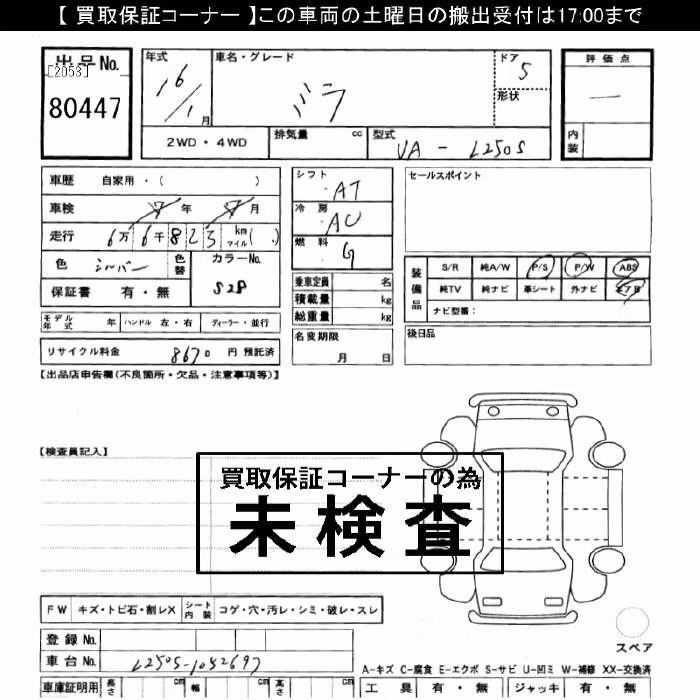 【 買取保証コーナー 】この車両の土曜日の搬出受付は17:00まで
出品No.
[2053]
80447
年式
16/1 月
車名・グレード
ミラ
ドア
5
形状
評価点
内装
2WD・4WD
排気量 cc
型式
UA - L250S
車歴 自家用・( )
車検 年 月
走行 6万6千823 km マイル( )
色 シルバー
色替
カラーNo.
S28
保証書 有・無
モデル年式 年 ハンドル 左・右 ディーラー・並行
リサイクル料金 8670 円 預託済
シフト AT
冷房 AC
燃料 G
乗車定員 名
積載量 kg
総重量 kg
名変期限
月 日
セールスポイント
装備品
S/R 純A/W P/S P/W ABS
純TV 純ナビ 革シート 外ナビ エアB
ナビ型番:
後日品
【出品店申告欄(不良箇所・欠品・注意事項等)】
【検査員記入】
買取保証コーナーの為
未検査
FW キズ・トビ石・割レX シート内装 コゲ・穴・汚レ・シミ・破レ・スレ
スペア
登録No.
車台No. L250S-1052697
A-キズ C-腐食 E-エクボ S-サビ U-凹ミ W-補修 XX-交換済
車庫証明用 長さ cm 幅 cm 高さ cm
工具 有・無 ジャッキ 有・無